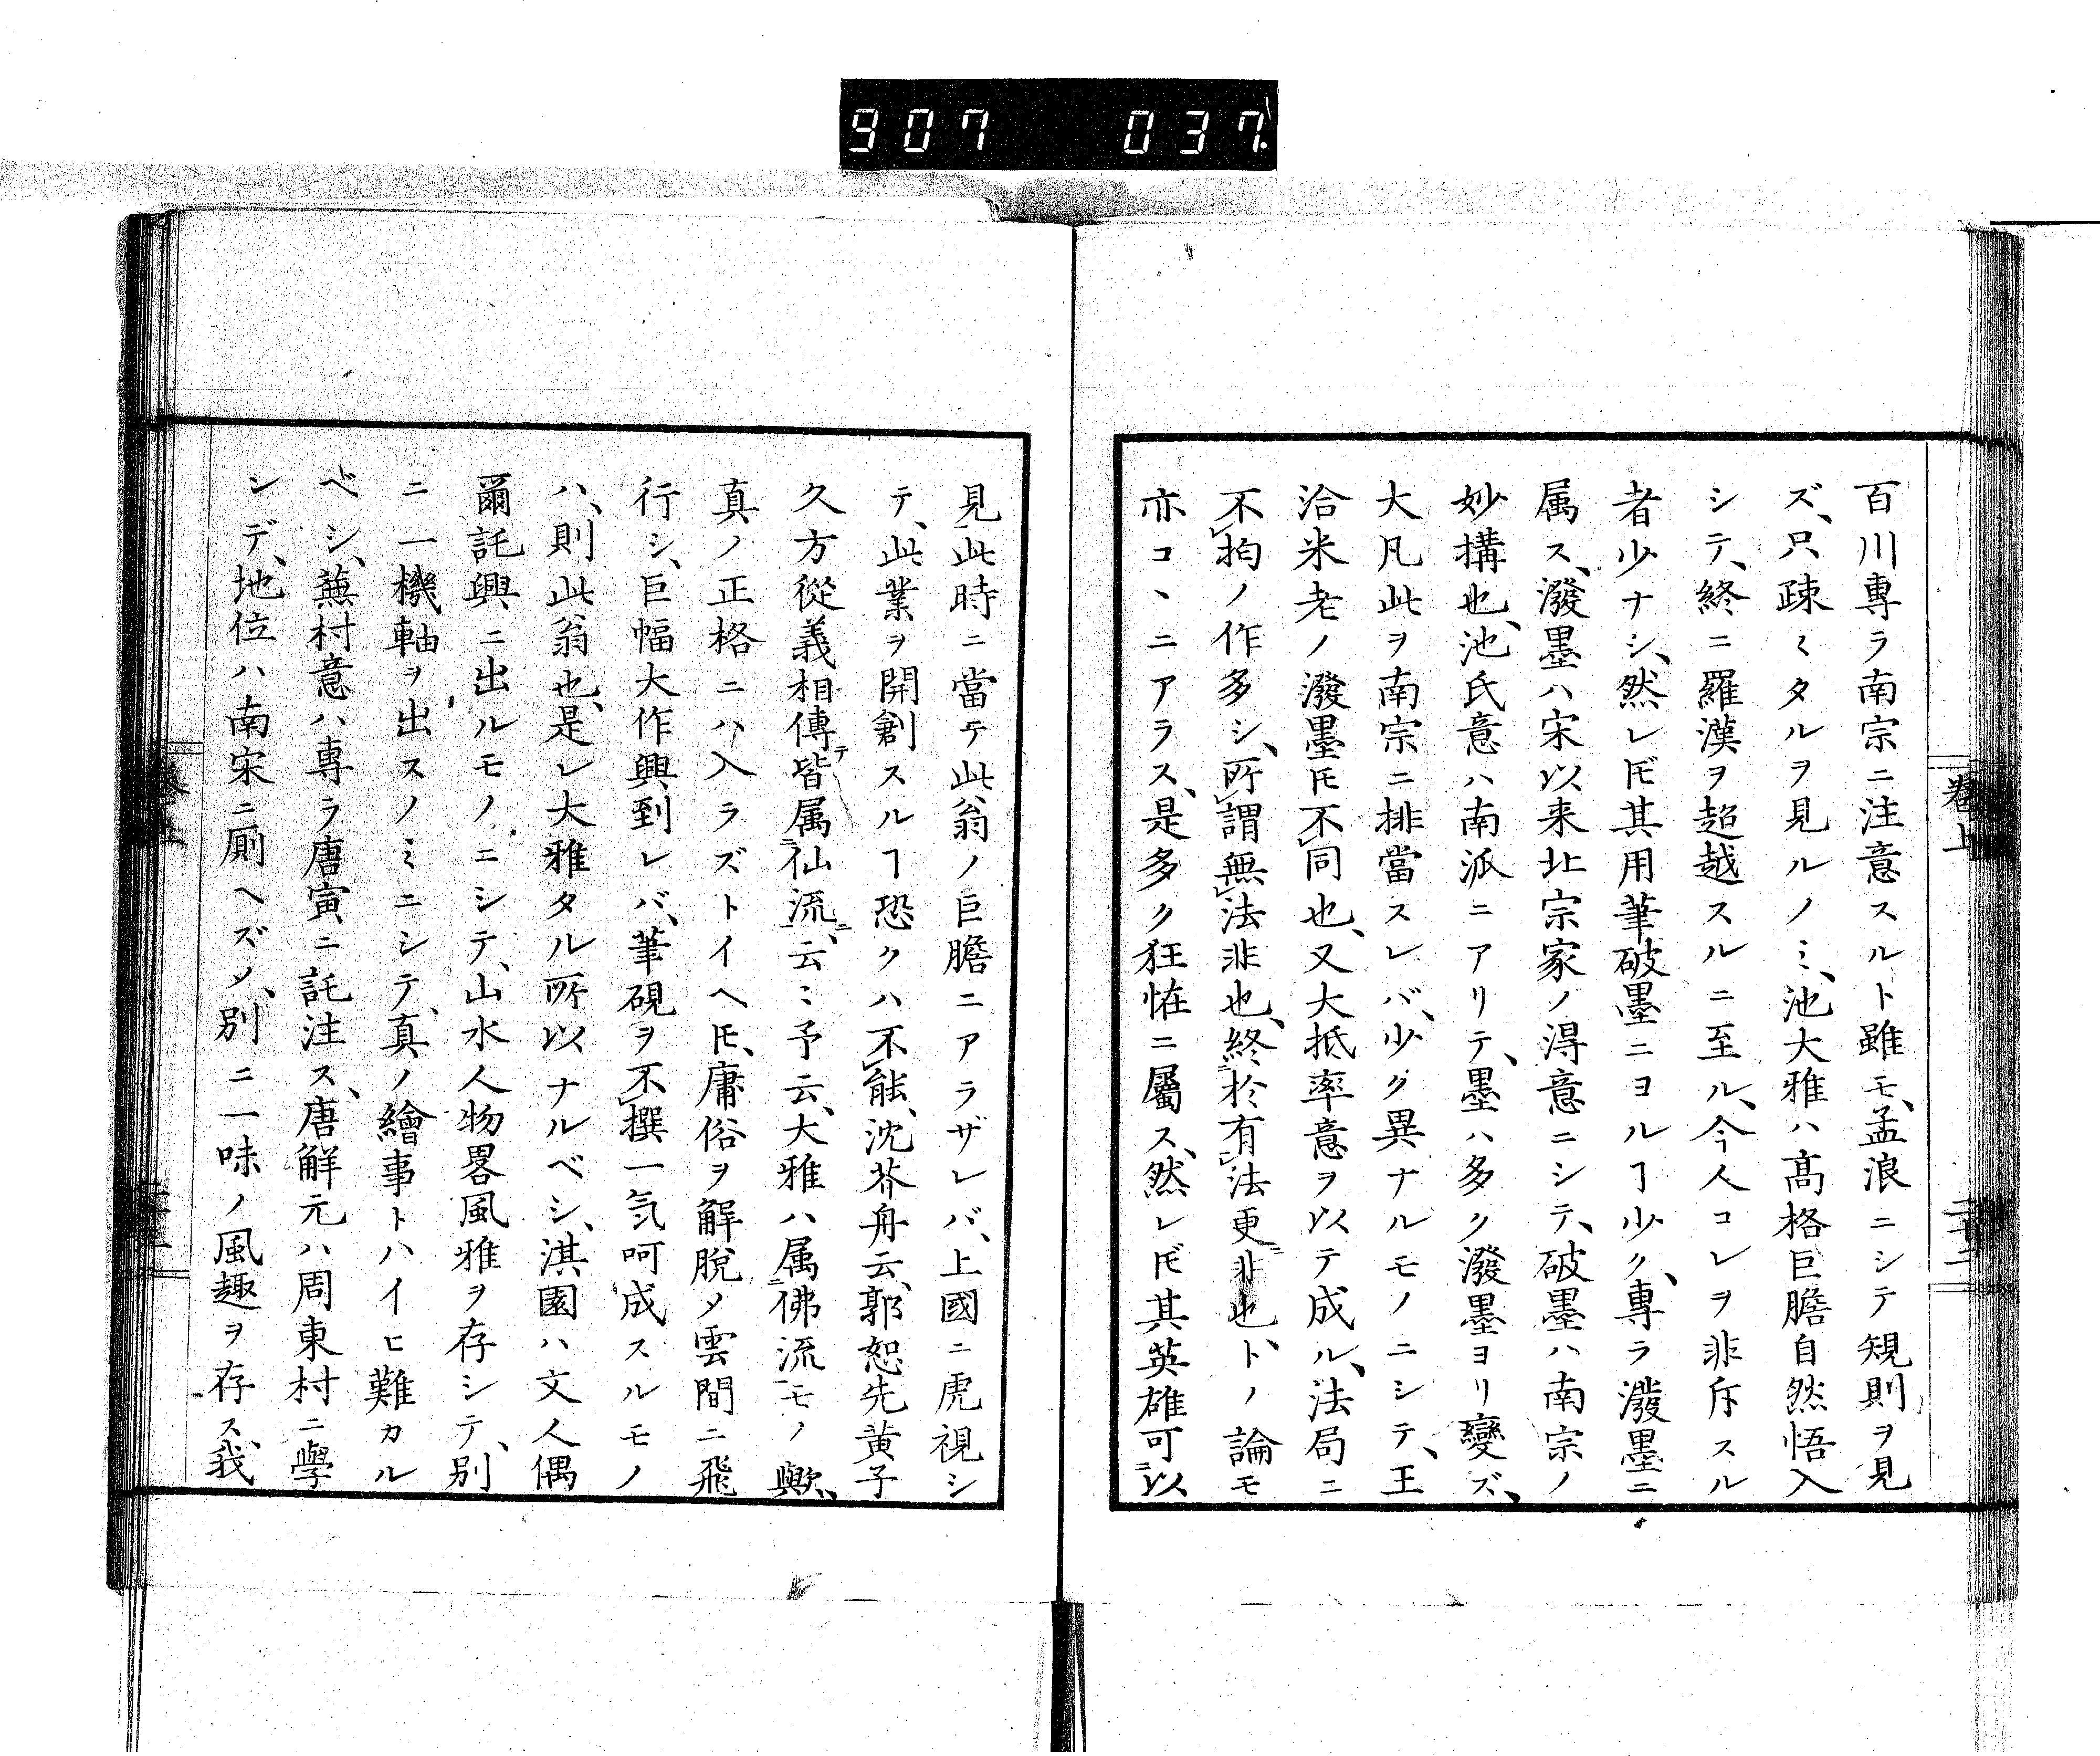 907 037
百川專ラ南宗ニ注意スルト雖モ、孟浪ニシテ規則ヲ見
ズ、只疎ミタルヲ見ルノミ、池大雅ハ髙格巨膽自然悟入
シテ、終ニ羅漢ヲ超越スルニ至ル、今人コレヲ非斥スル
者少ナシ、然レ𪜈其用筆破墨ニヨルヿ少ク、專ラ潑墨ニ
属ス、潑墨ハ宋以来北宗家ノ淂意ニシテ、破墨ハ南宗ノ
妙搆也、池氏意ハ南派ニアリテ、墨ハ多ク潑墨ヨリ變ズ、
大凡此ヲ南宗ニ排當スレバ、少ク異ナルモノニシテ、王
洽米老ノ潑墨𪜈不同也、又大抵率意ヲ以テ成ル、法局ニ
不拘ノ作多シ、所謂無法非也、終於有法更非也、トノ論モ
亦コヽニアラス、是多ク狂恠ニ屬ス、然レ𪜈其英雄可以
卷上
二十二
見此時ニ當テ此翁ノ巨膽ニアラザレバ、上國ニ虎視シ
テ、此業ヲ開創スルヿ恐クハ不能、沈芥舟云、郭恕先黄子
久方從義相傳テ皆属仙流ニ、云ミ予云、大雅ハ属佛流モノ歟、
真ノ正格ニハ入ラズトイヘ𪜈、庸俗ヲ解脫メ雲間ニ飛
行シ、巨幅大作興到レバ、筆硯ヲ不撰一気呵成スルモノ
ハ、則此翁也、是レ大雅タル所以ナルベシ、淇園ハ文人偶
爾託興ニ出ルモノニシテ、山水人物畧風雅ヲ存シテ、別
ニ一機軸ヲ出スノミニシテ、真ノ繪事トハイヒ難カル
ベシ、蕪村意ハ專ラ唐寅ニ託注ス、唐解元ハ周東村ニ學
ンデ、地位ハ南宋ニ厠ヘズメ、別ニ一味ノ風趣ヲ存ス、我